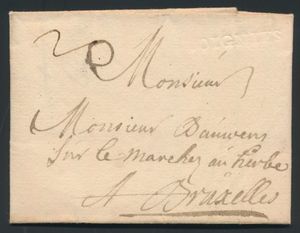 Monsieur
Monsieur Dauwens
Sur le Marchez au herbe
A Bruxelles